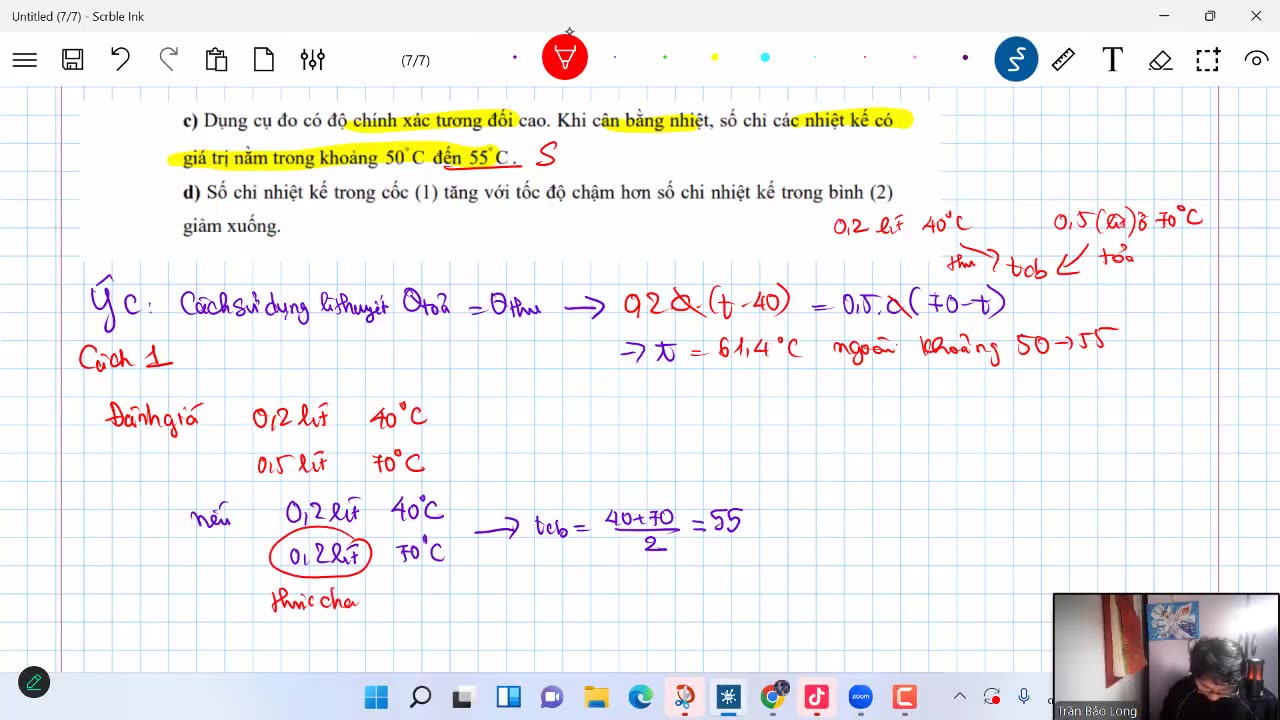 Untitled (7/7) - Scrble Ink
(7/7)
c) Dụng cụ đo có độ chính xác tương đối cao. Khi cân bằng nhiệt, số chỉ các nhiệt kế có
giá trị nằm trong khoảng 50°C đến 55°C. S
d) Số chỉ nhiệt kế trong cốc (1) tăng với tốc độ chậm hơn số chỉ nhiệt kế trong bình (2)
giảm xuống.
0,2 lít 40°C 0,5 (lít) ở 70°C
thu tcb tỏa
Ý C: Cách sử dụng lí thuyết Qtoả = Qthu → 0,2 a. (t - 40) = 0,5. a (70 - t)
Cách 1
→ t = 61,4°C ngoài khoảng 50 → 55
Đánh giá 0,2 lít 40°C
0,5 lít 70°C
nếu 0,2 lít 40°C
0,2 lít 70°C
→ tcb = 40+70 / 2 = 55
thực cha
zoom
Trần Bảo Long